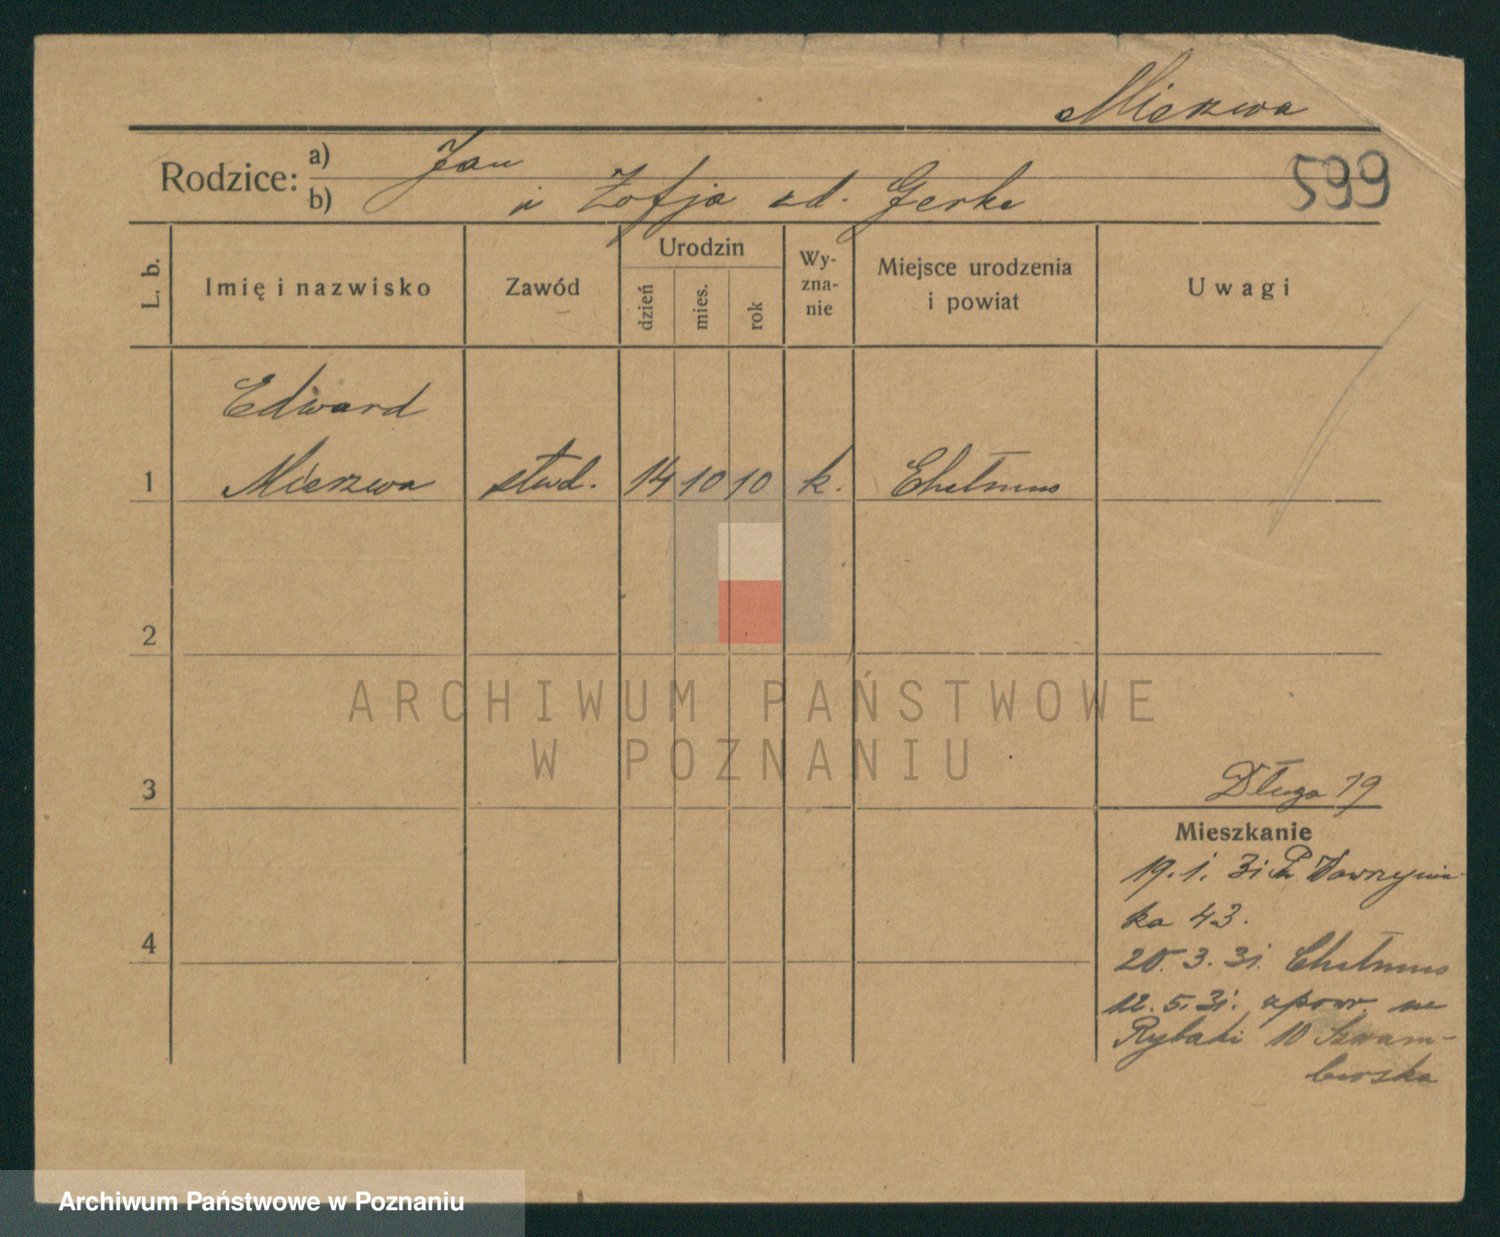 Mierzwa
Rodzice: a) Jan
b) i Zofja zd. Gerke
599
L. b.
Imię i nazwisko
Zawód
Urodzin
dzień
mies.
rok
Wy-
zna-
nie
Miejsce urodzenia
i powiat
Uwagi
Edward
1 Mierzwa stud. 14 10 10 k. Chełmno
2
ARCHIWUM PAŃSTWOWE
W POZNANIU
3
Długa 19
Mieszkanie
19.1.31
ka 43.
4
20.3.31. Chełmno
12.5.31. zpowr. na
Rybaki 10 Szwam-
berska
Archiwum Państwowe w Poznaniu